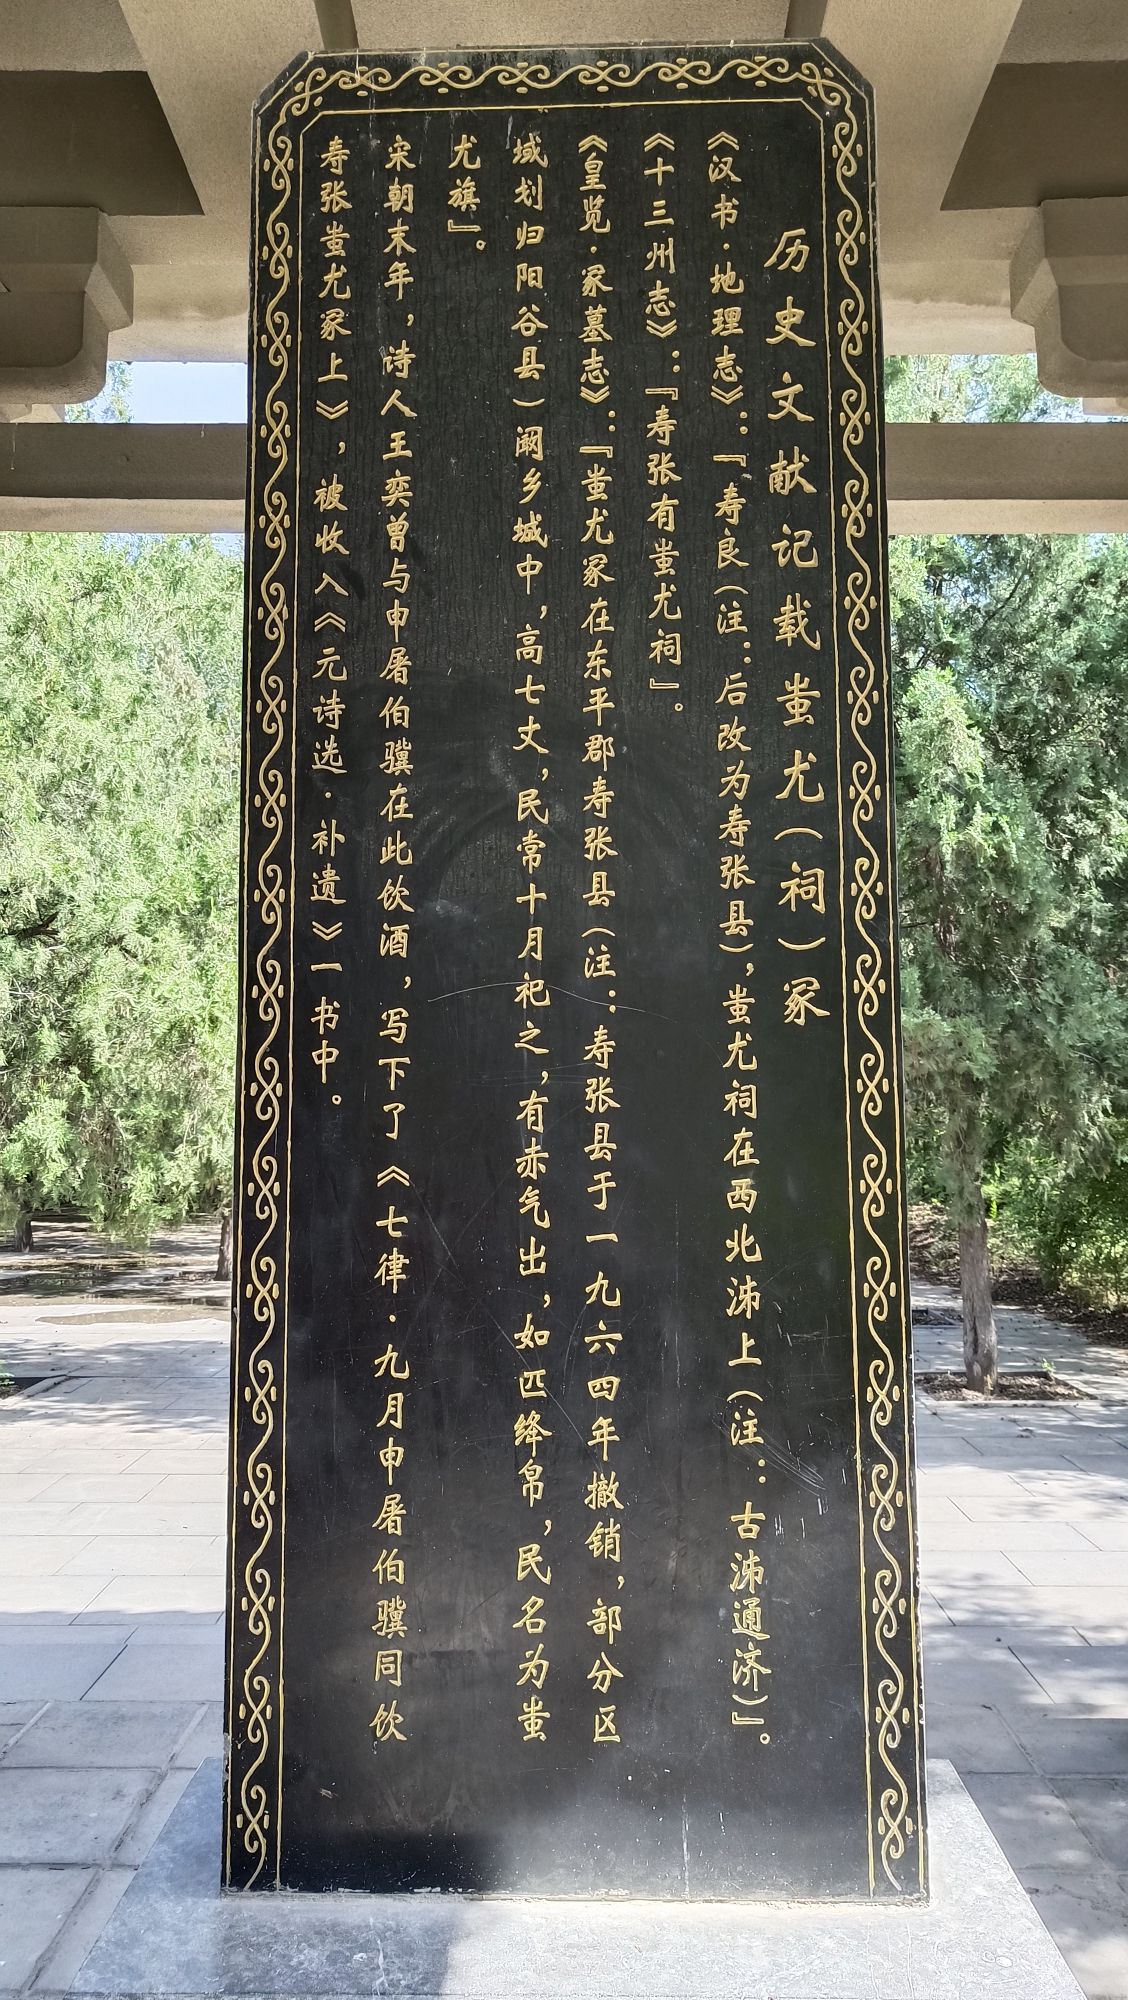 历史文献记载蚩尤（祠）冢
《汉书·地理志》：『寿良（注：后改为寿张县），蚩尤祠在西北泲上（注：古泲通济）』。
《十三州志》：『寿张有蚩尤祠』。
《皇览·冢墓志》：『蚩尤冢在东平郡寿张县（注：寿张县于一九六四年撤销，部分区
域划归阳谷县）阚乡城中，高七丈，民常十月祀之，有赤气出，如匹绛帛，民名为蚩
尤旗』。
宋朝末年，诗人王奕曾与申屠伯骥在此饮酒，写下了《七律·九月申屠伯骥同饮
寿张蚩尤冢上》，被收入《元诗选·补遗》一书中。